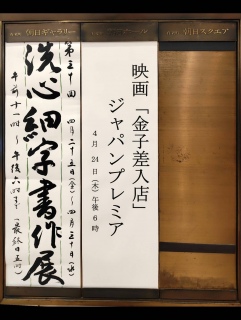 朝日スクエア
映画「金子差入店」
ジャパンプレミア
4月24日（木）午後6時
朝日ギャラリー
第三十回 四月二十五日（金）〜四月三十日（水）
洗心細字書作展
午前十一時〜午後六時まで（最終日五時）